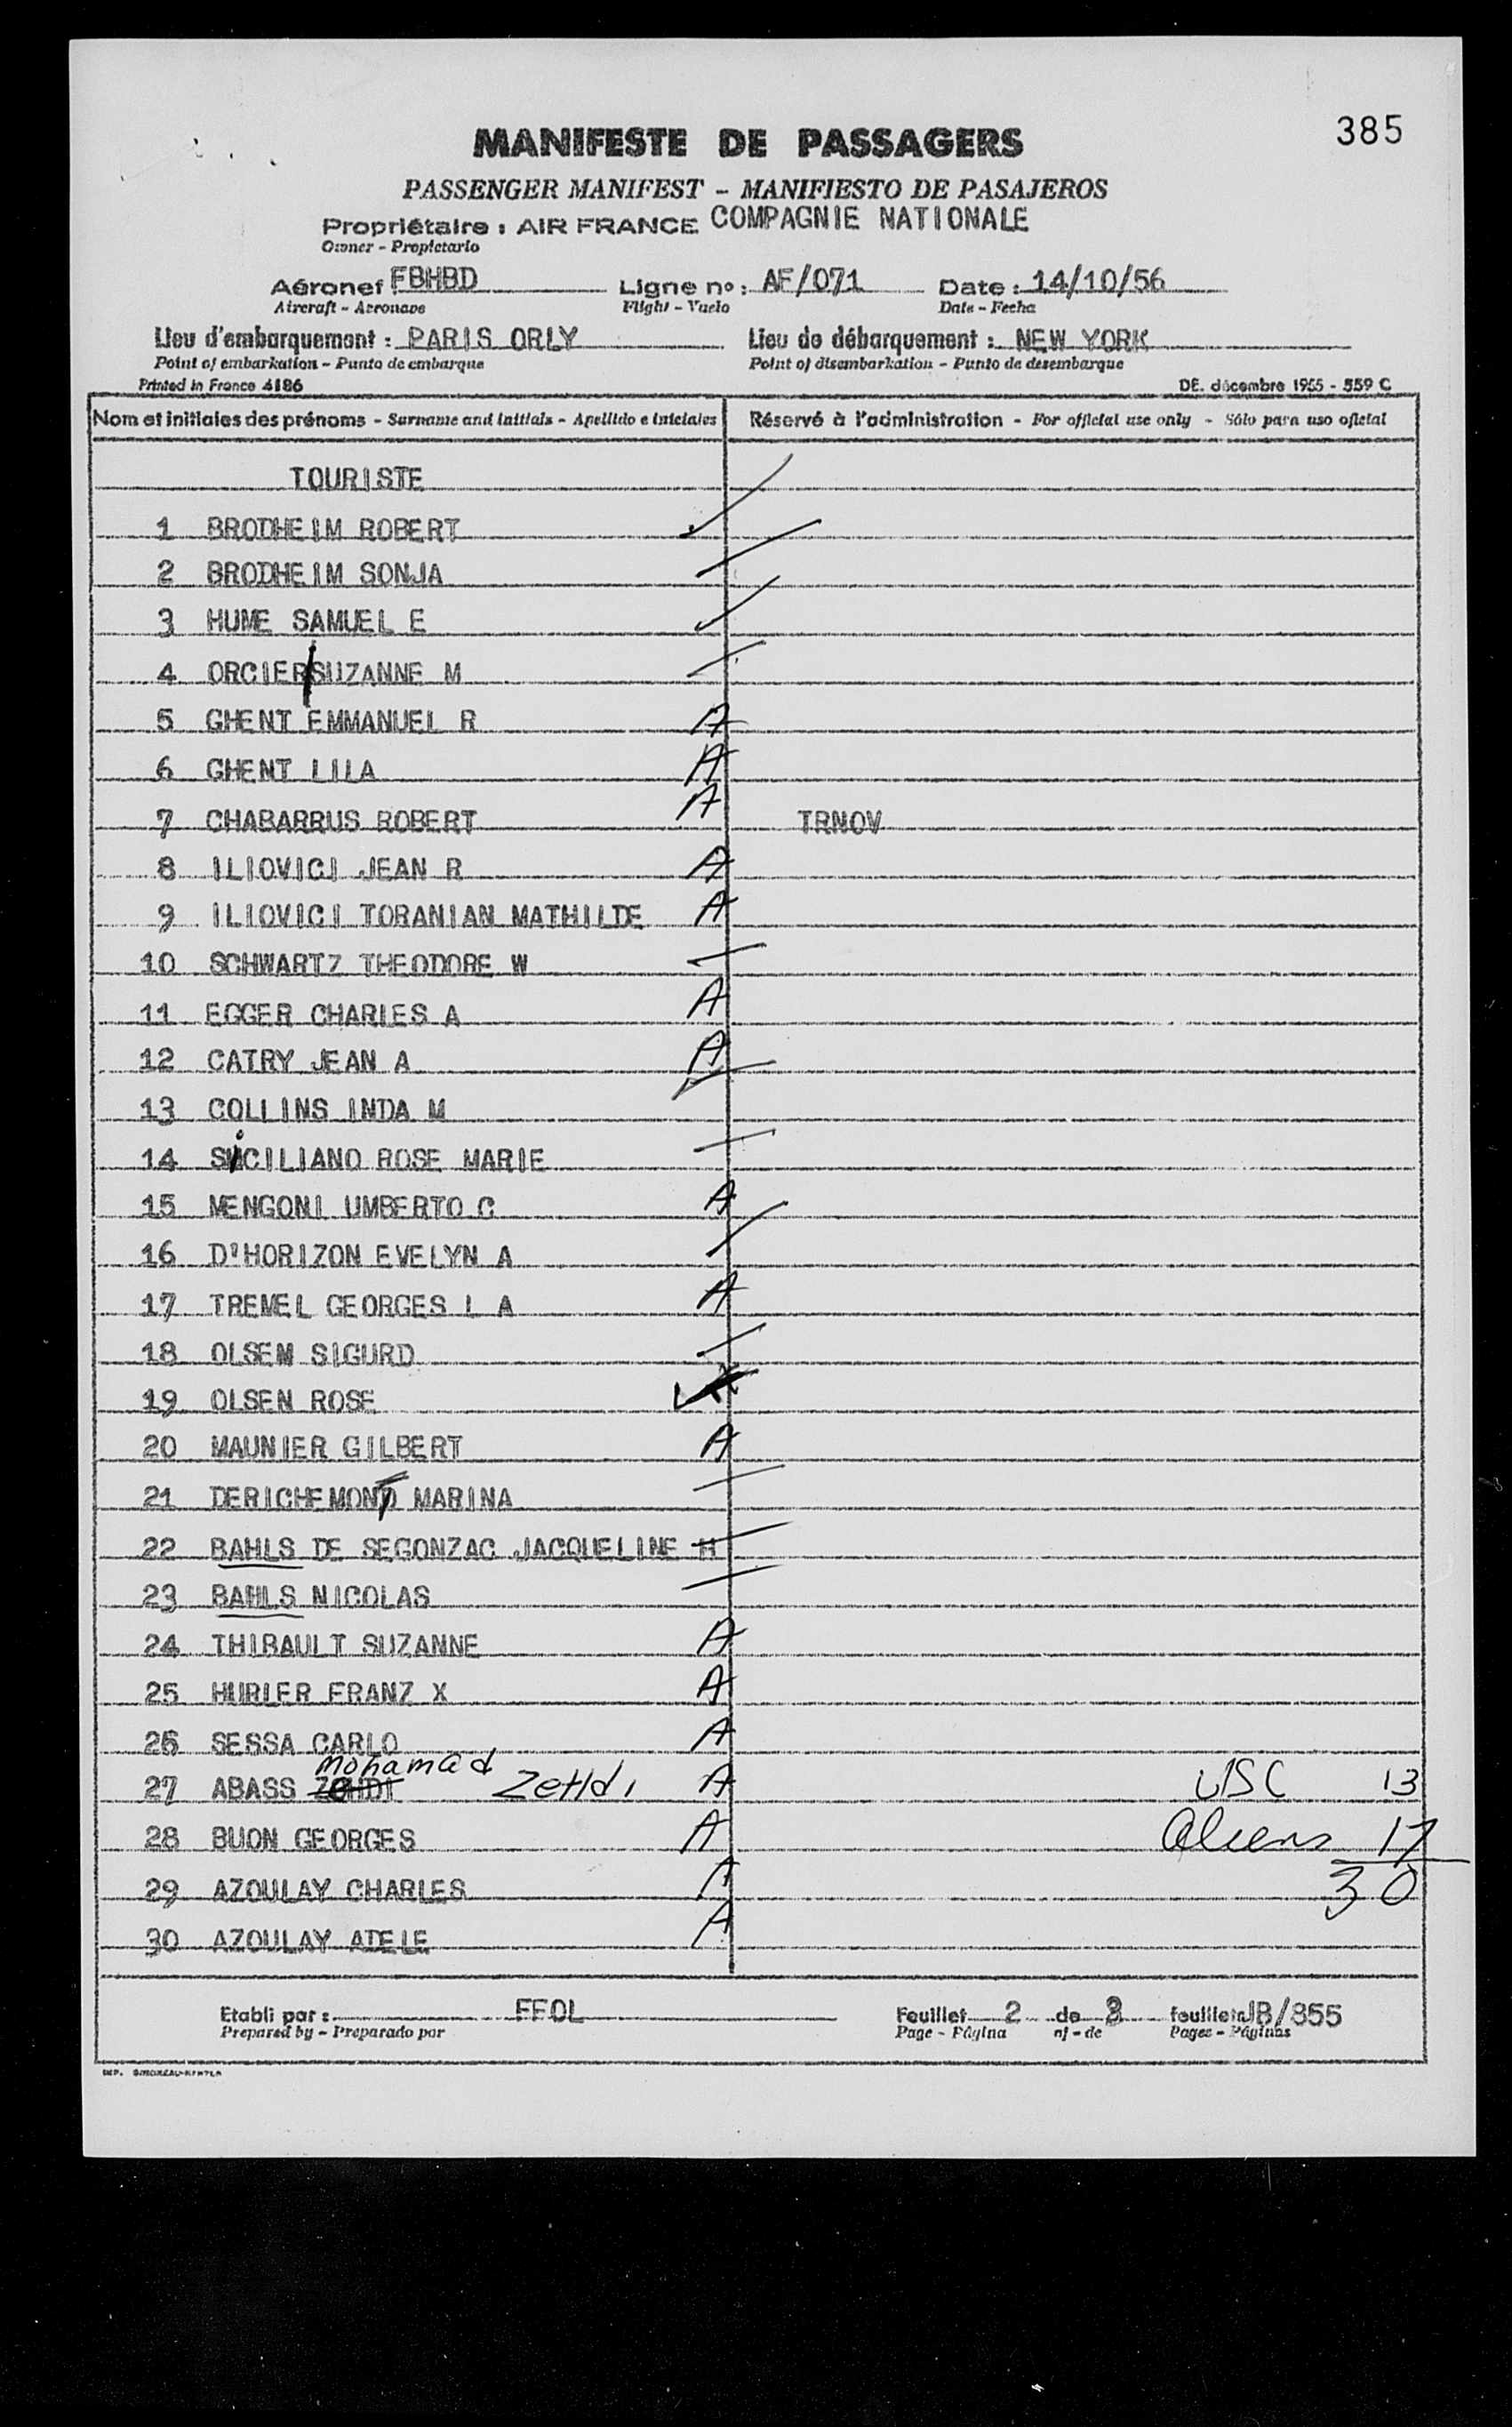 385
MANIFESTE DE PASSAGERS
PASSENGER MANIFEST - MANIFIESTO DE PASAJEROS
Propriétaire : AIR FRANCE COMPAGNIE NATIONALE
Owner - Propietario
Aéronef FBHBD Ligne nº : AF/071 Date : 14/10/56
Aircraft - Aeronave Flight - Vuelo Date - Fecha
Lieu d'embarquement : PARIS ORLY Lieu de débarquement : NEW YORK
Point of embarkation - Punto de embarque Point of disembarkation - Punto de desembarque
Printed in France 4186 DE. décembre 1955 - 559 C
Nom et initiales des prénoms - Surname and initials - Apellido e iniciales Réservé à l'administration - For official use only - Sólo para uso oficial
TOURISTE
1 BRODHEIM ROBERT
2 BRODHEIM SONJA
3 HUME SAMUEL E
4 ORCIER SUZANNE M
5 GHENT EMMANUEL R A
6 GHENT LILA A
7 CHABARRUS ROBERT A TRNOV
8 ILIOVICI JEAN R A
9 ILIOVICI TORANIAN MATHILDE A
10 SCHWARTZ THEODORE W
11 EGGER CHARLES A A
12 CATRY JEAN A A
13 COLLINS INDA M
14 SICILIANO ROSE MARIE
15 MENGONI UMBERTO C A
16 D'HORIZON EVELYN A
17 TREMEL GEORGES L A A
18 OLSEM SIGURD
19 OLSEN ROSE
20 MAUNIER GILBERT A
21 DERICHEMONT MARINA
22 BAHLS DE SEGONZAC JACQUELINE H
23 BAHLS NICOLAS
24 THIBAULT SUZANNE A
25 HURLER FRANZ X A
26 SESSA CARLO A
Mohamad
27 ABASS ZEHDI Zehdi A USC 13
28 BUON GEORGES A Aliens 17
29 AZOULAY CHARLES A 30
30 AZOULAY ADELE A
Etabli par : FFOL Feuillet 2 de 3 feuillets JB/855
Prepared by - Preparado por Page - Página of - de Pages - Páginas